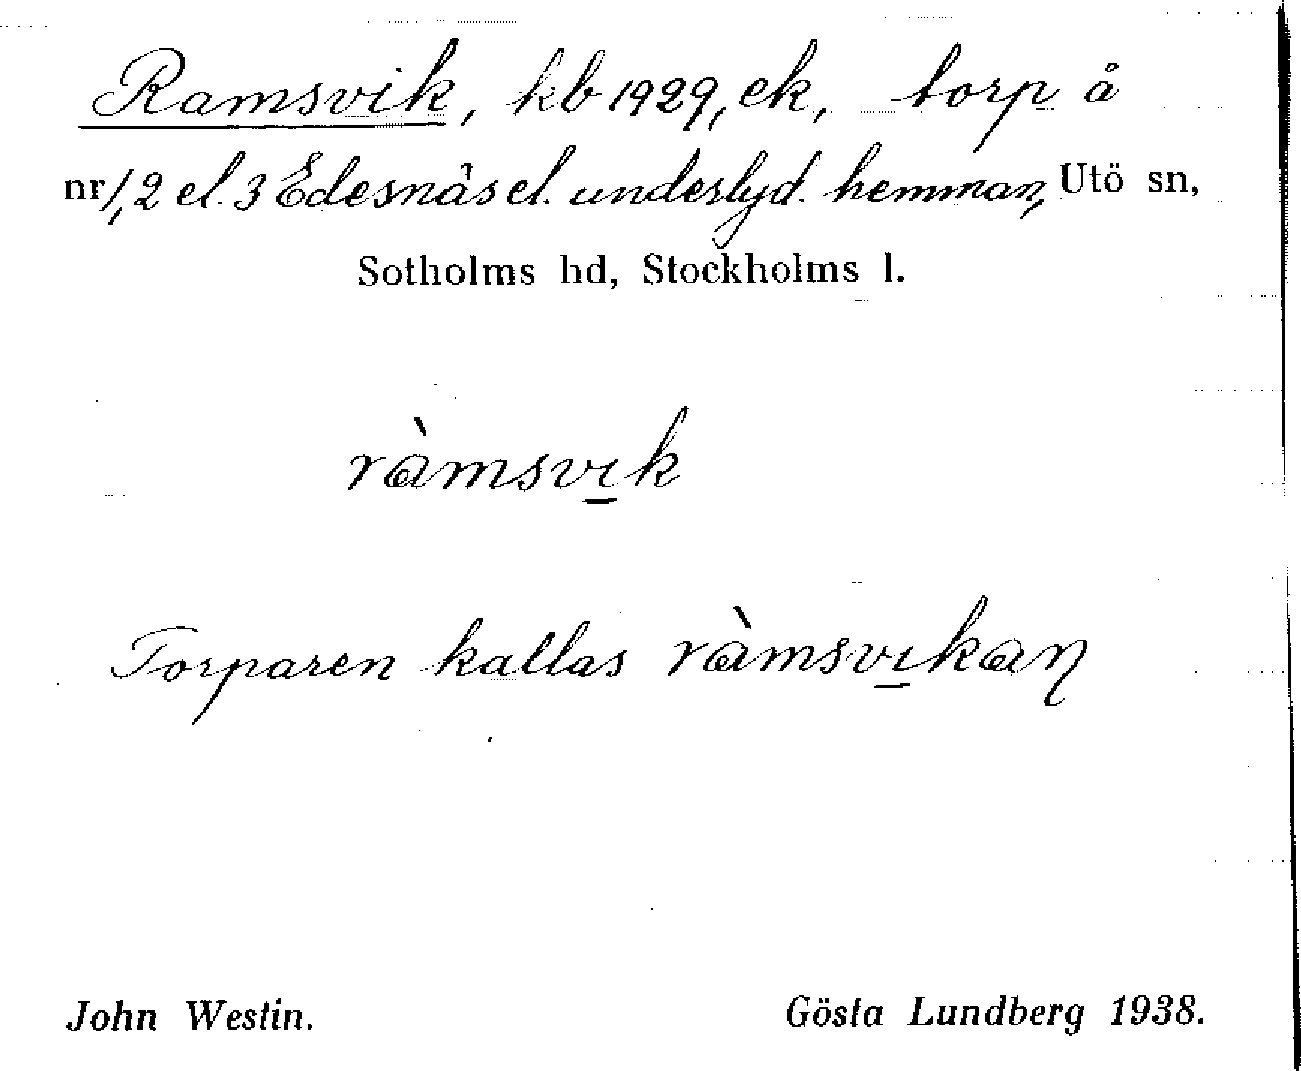 Ramsvik, kb 1929, ek, torp å
nr 1, 2 el. 3 Edesnäs el. underlyd. hemman, Utö sn,
Sotholms hd, Stockholms l.
ràmsvı̠k
Torparen kallas ràmsvı̠kaŋ
John Westin.
Gösta Lundberg 1938.